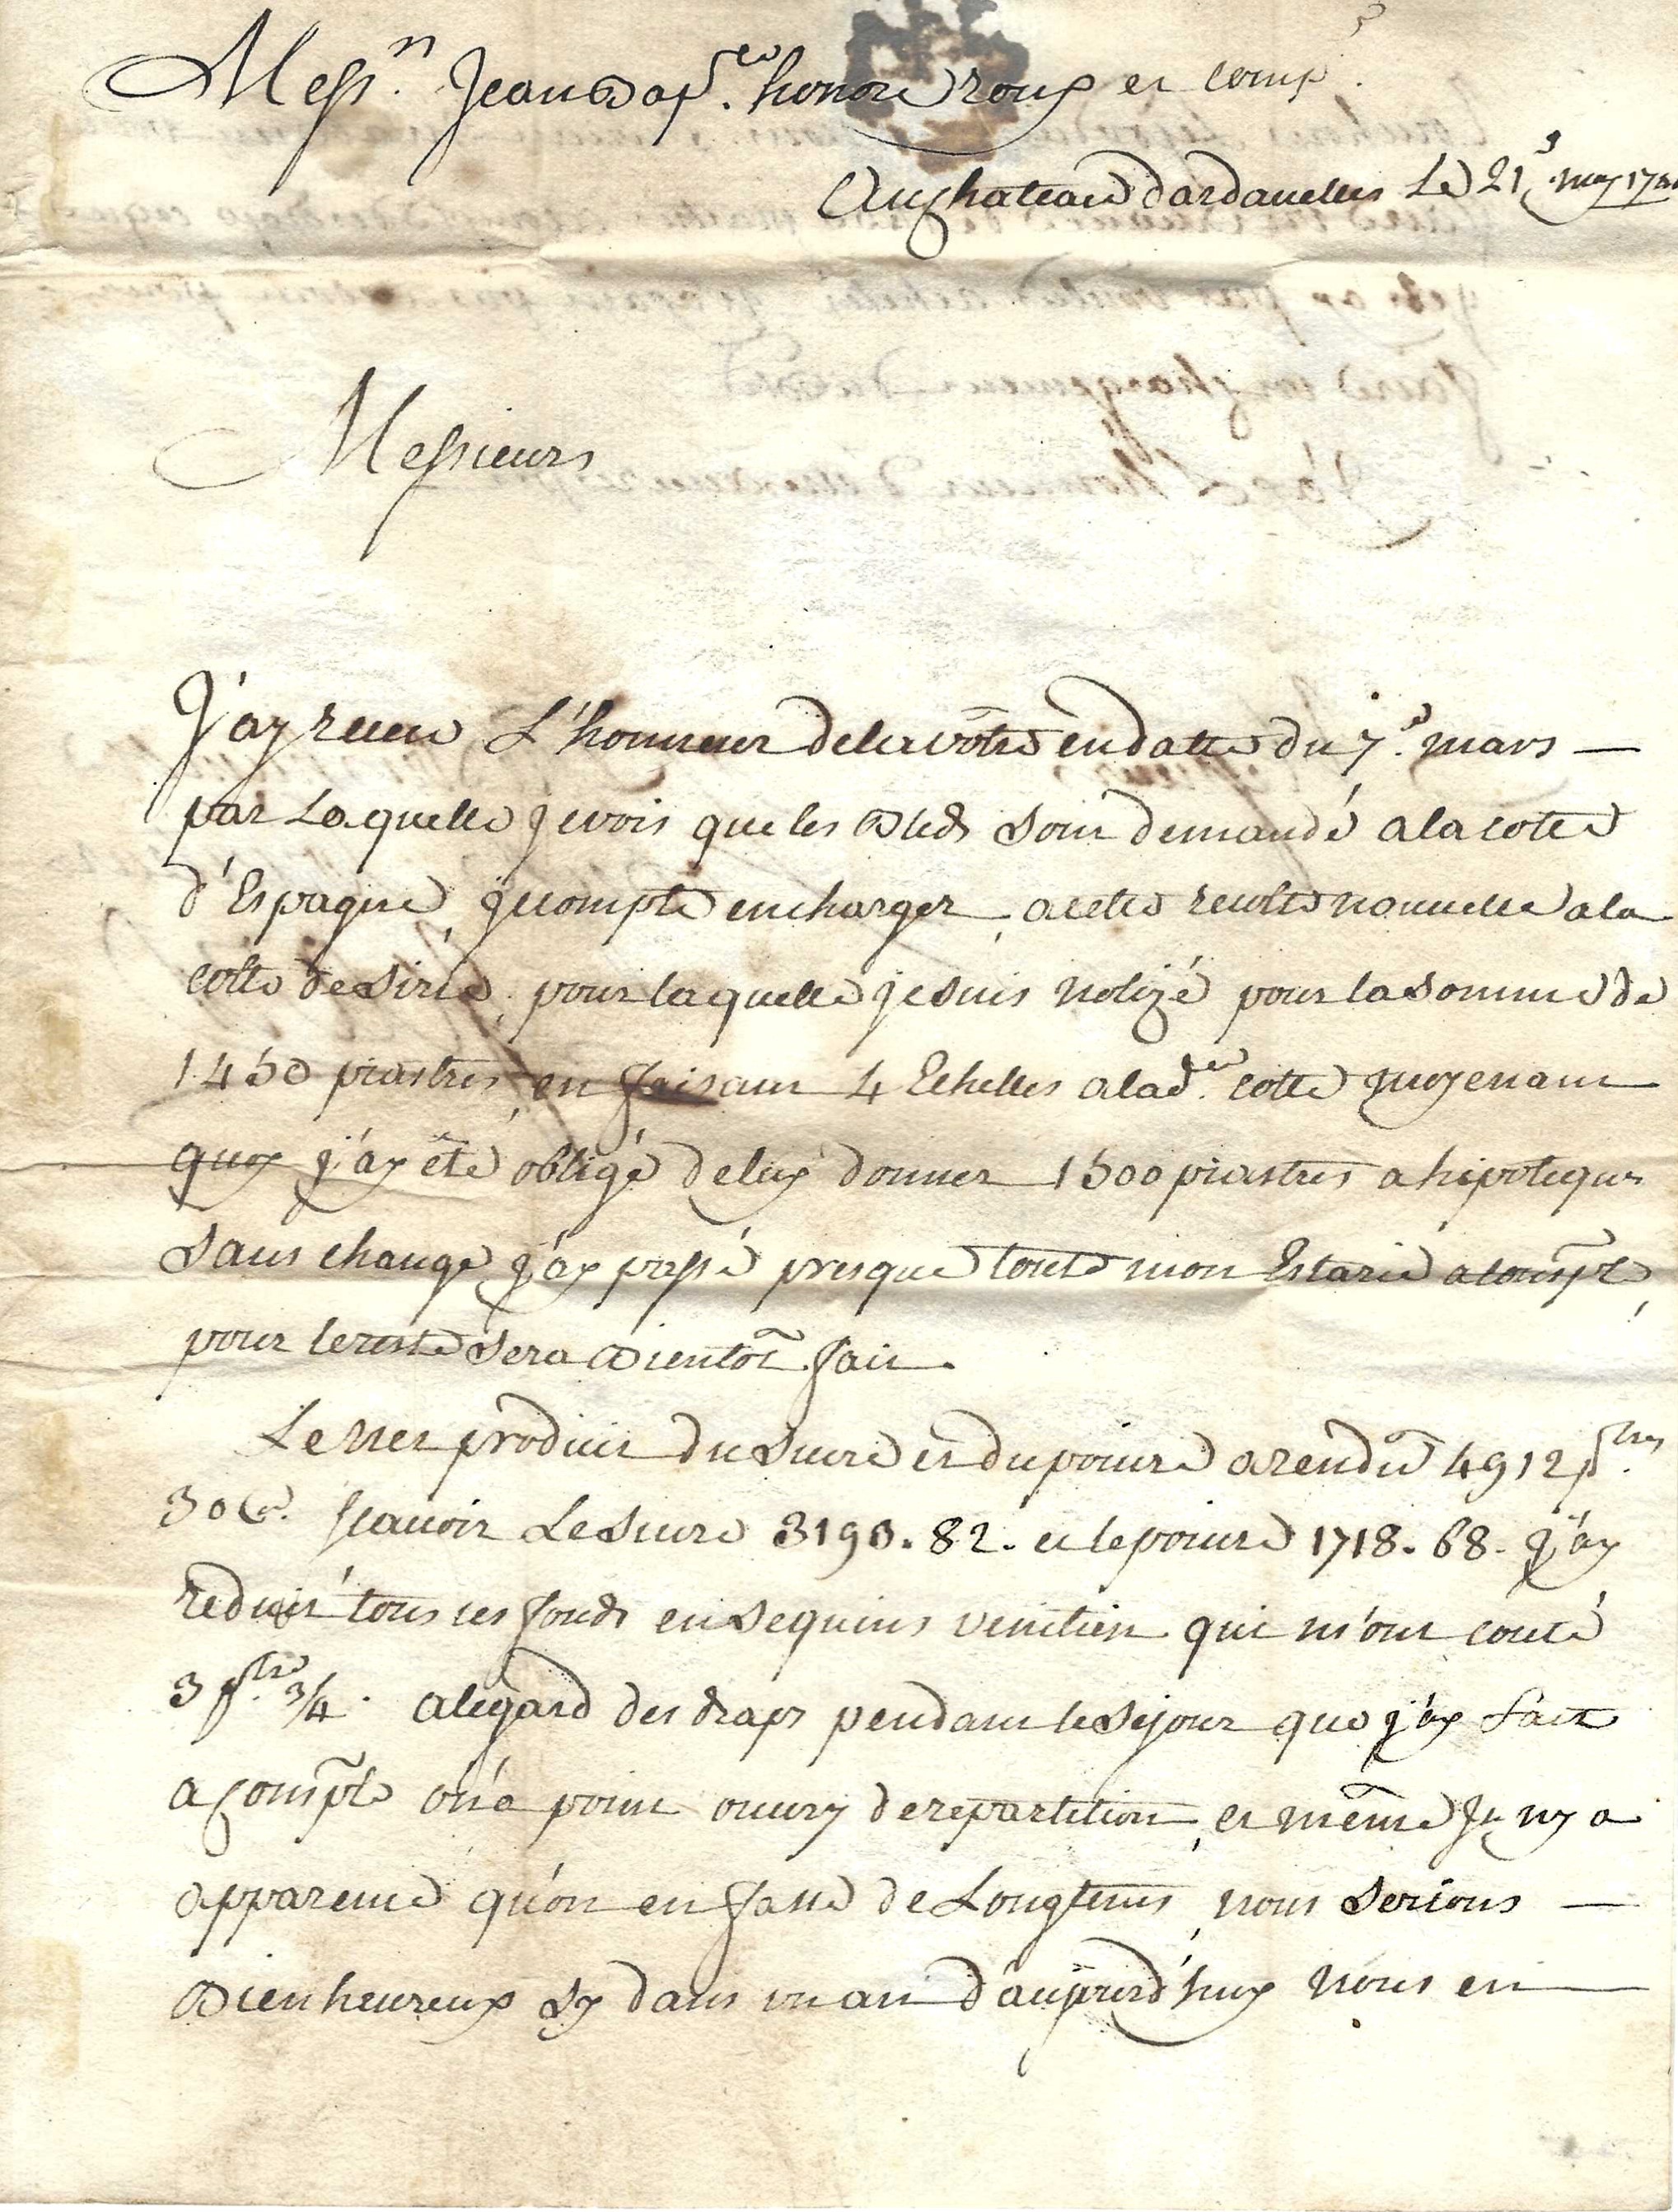 Messrs. Jean Bapte. honoré roux et compe.
Au chateau dardanelles Le 21e may 17
Messieurs
J'ay receu L'honneur dela vôtre en datte du 7e. mars —
par Laquelle je vois que les Bleds sont demandé a la cotte
d'Espagne, je compte en charger, a cette recolte nouvelle a la
cotte de Sirie, pour laquelle je suis nolizé pour la somme de
1450 piastres, en faisant 4 Echelles a lad.te cotte moyenant
quoy j'ay êté obligé de luy donner 1500 piastres a hipoteques
sans change j'ay passé presque toute mon Estarie a Consple,
pour le reste sera Bientôt fait.
Le net produit du sucre et du poivre a rendû 4912 ptres.
30 Cs. scavoir Le sucre 3193. 82. et le poivre 1718. 68. j'ay
reduit tous ces fonds en sequins venitien qui m'ont couté
3 ptre. 3/4. a legard des draps pendant le sejour que j'ay fait
a Consple on'a point ouvry de repartition, et même Il ny a
apparence qu'on en fasse de Longtems, nous serions —
Bien heureux sy dans un an d'aujourd'huy nous en —